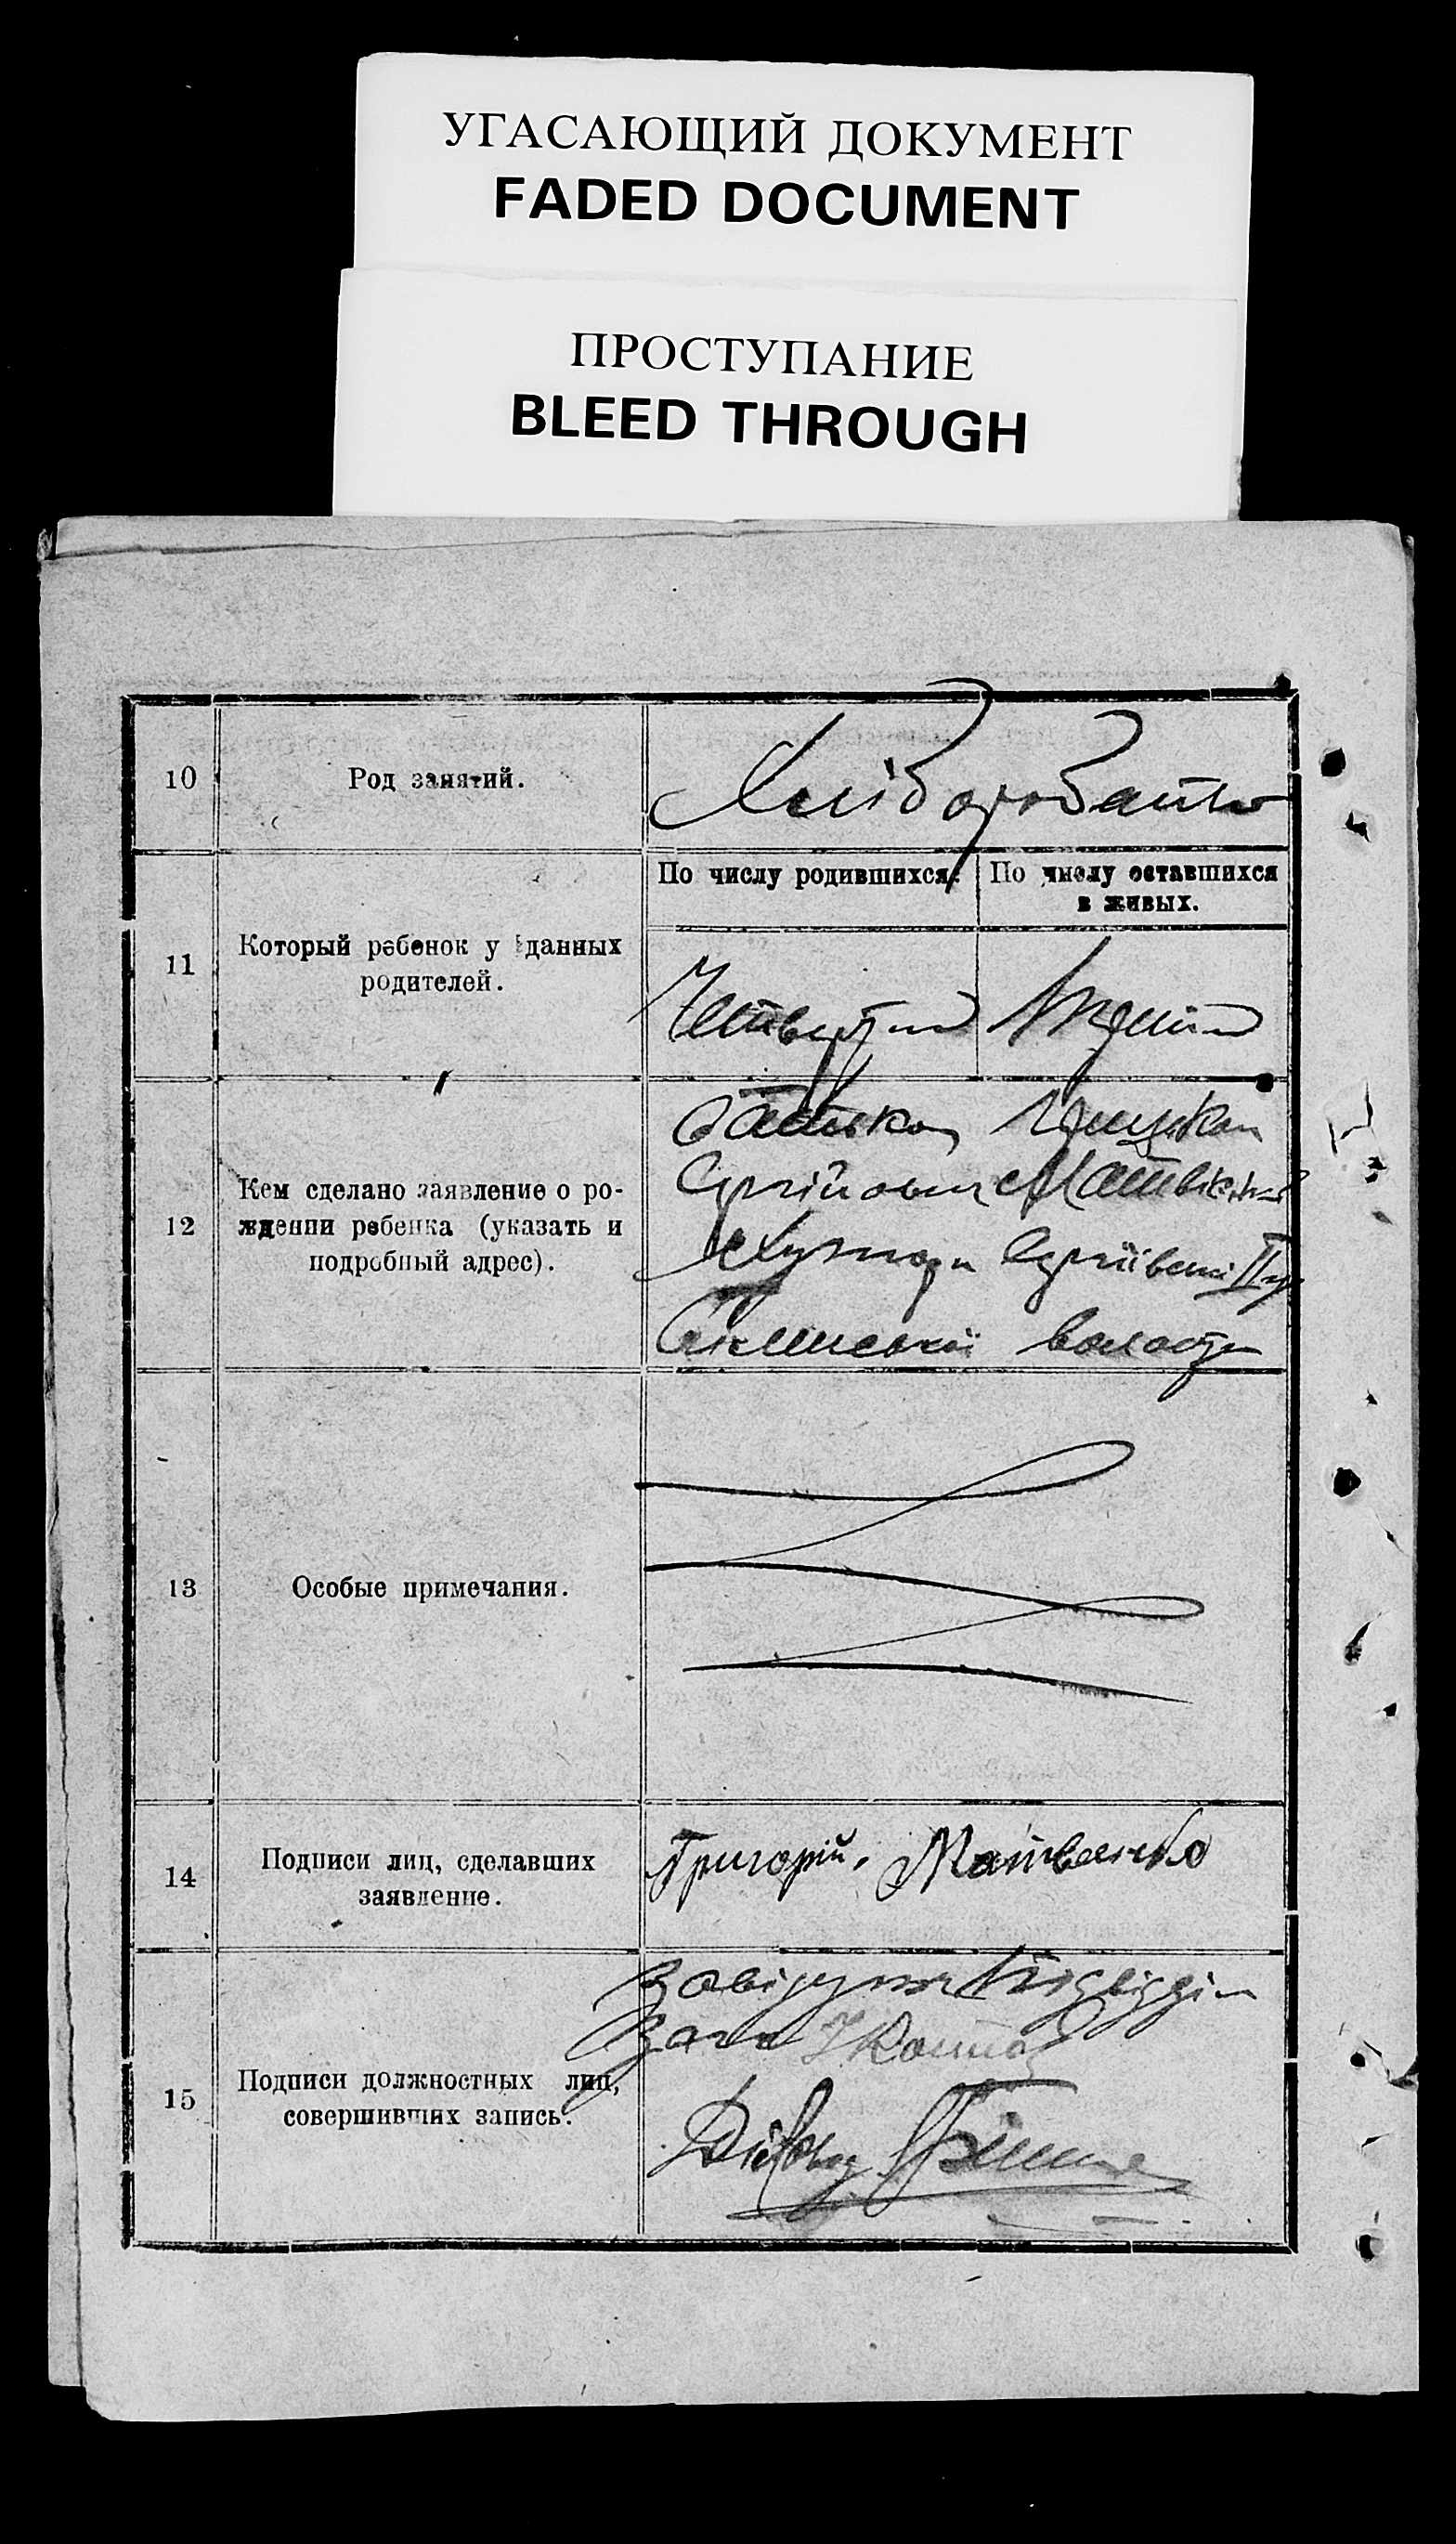 УГАСАЮЩИЙ ДОКУМЕНТ
FADED DOCUMENT
ПРОСТУПАНИЕ
BLEED THROUGH
10
Род занятий.
11
Который ребенок у данных
родителей.
По числу родившихся.
По числу оставшихся
в живых.
Четвертий
12
Кем сделано заявление о ро-
ждении ребенка (указать и
подробный адрес).
батьком
Сергійовим Матвієнко
Хутори Сергіївськ II
волости
13
Особые примечания.
14
Подписи лиц, сделавших
заявление.
Григорій, Матвеенко
15
Подписи должностных лиц,
совершивших запись.
Завідуючий Підвідділ
Загса
Діловод